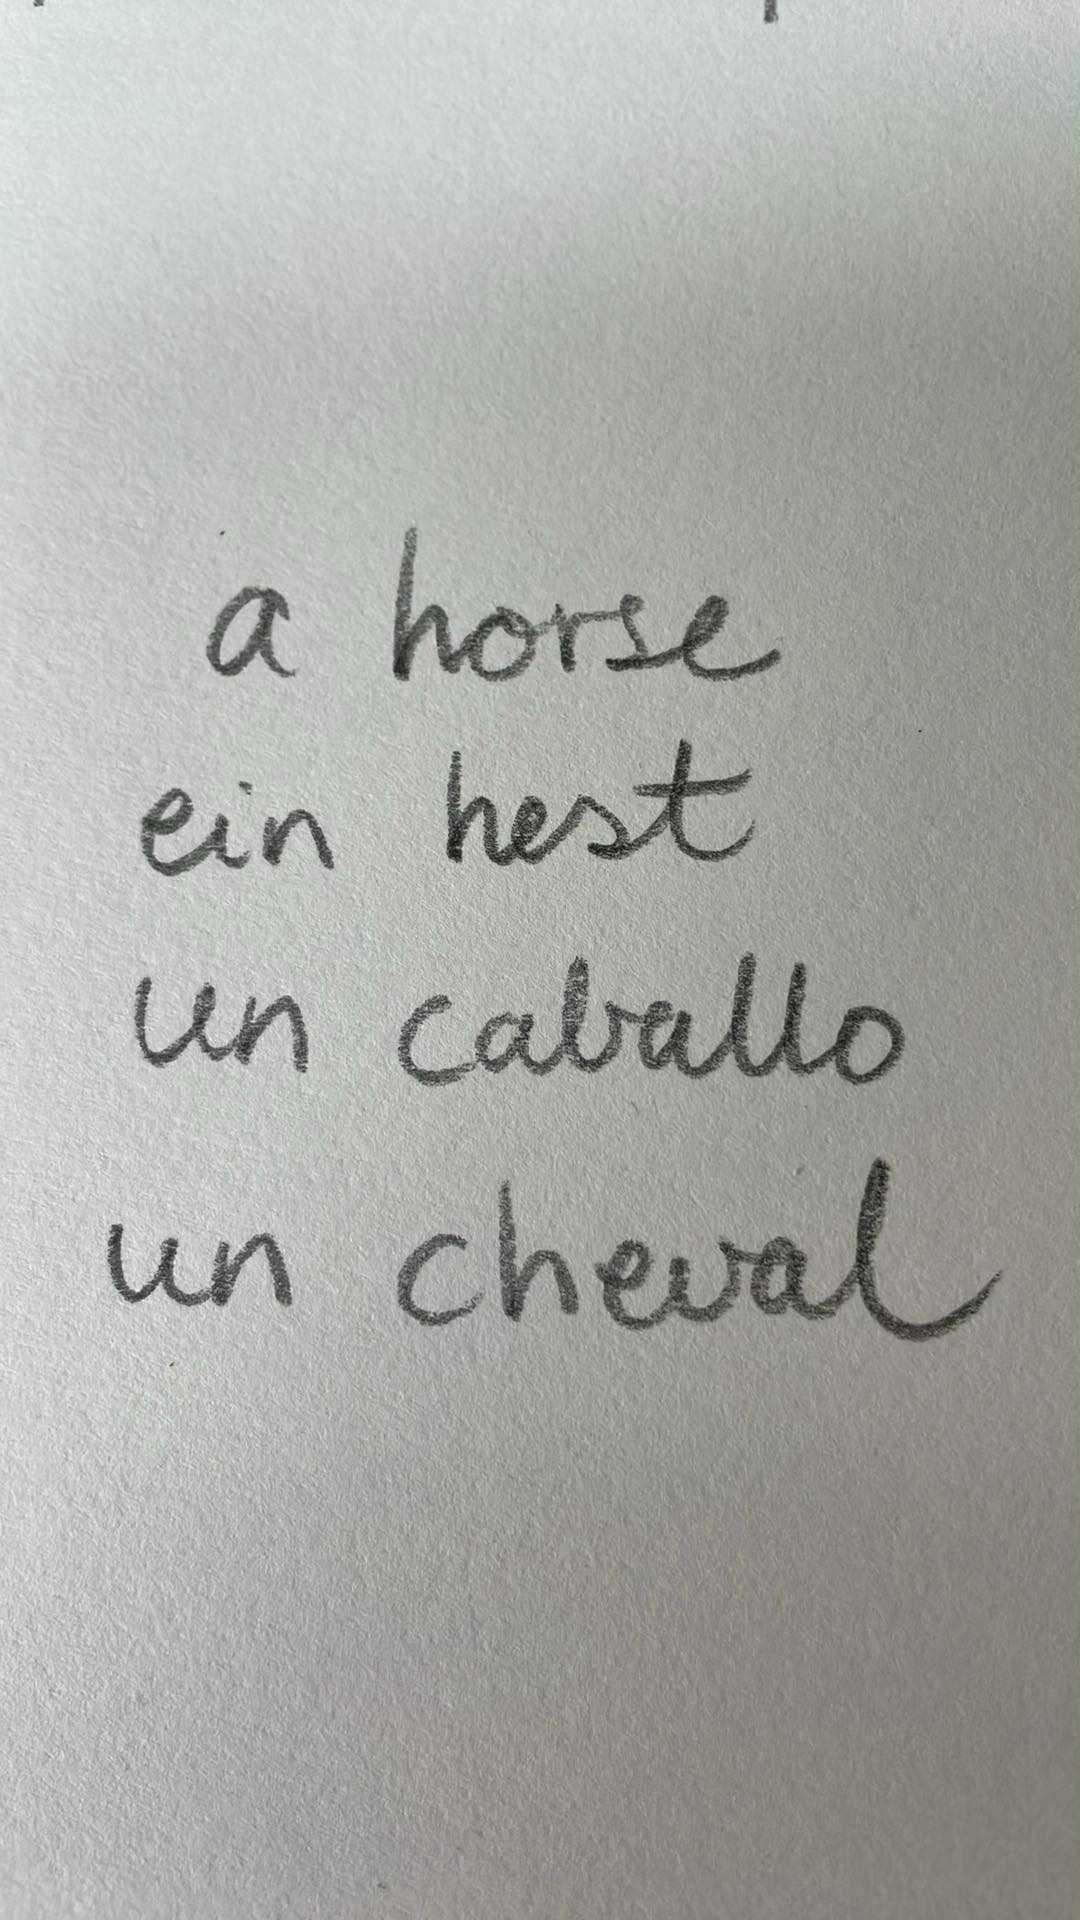 a horse
ein hest
un caballo
un cheval